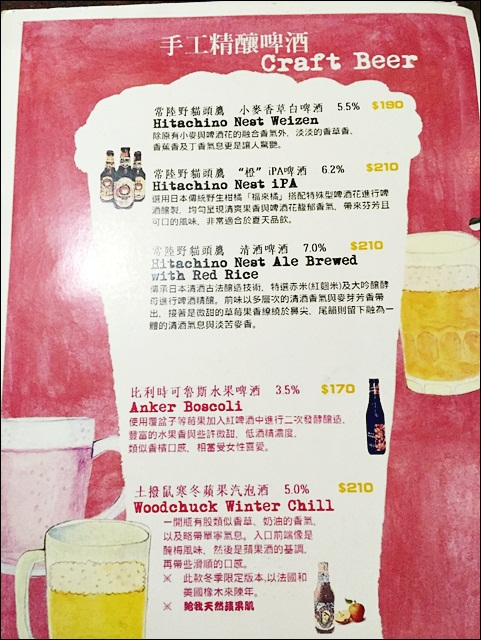 手工精釀啤酒
Craft Beer
常陸野貓頭鷹 小麥香草白啤酒 5.5% $190
Hitachino Nest Weizen
除原有小麥與啤酒花的融合香氣外，淡淡的香草香、
香蕉香及丁香氣息更是讓人驚艷。
常陸野貓頭鷹 “橙”iPA啤酒 6.2% $210
Hitachino Nest iPA
選用日本傳統野生柑橘「福來橘」搭配特殊型啤酒花進行啤
酒釀製，均勻呈現清爽果香與啤酒花馥郁香氣，帶來芬芳且
可口的風味，非常適合於夏天品飲。
常陸野貓頭鷹 清酒啤酒 7.0% $210
Hitachino Nest Ale Brewed
with Red Rice
傳承日本清酒古法釀造技術，特選赤米(紅麴米)及大吟釀酵
母進行啤酒精釀。前味以多層次的清酒香氣與麥芽芳香帶
出，接著是微甜的草莓果香線繞於鼻尖，尾韻則留下融為一
體的清酒氣息與淡苦麥香。
比利時可魯斯水果啤酒 3.5% $170
Anker Boscoli
使用覆盆子等莓果加入紅啤酒中進行二次發酵釀造，
豐富的水果香與些許微甜，低酒精濃度，
類似香檳口感，相當受女性喜愛。
土撥鼠寒冬蘋果汽泡酒 5.0% $210
Woodchuck Winter Chill
一開瓶有股類似香草、奶油的香氣，
以及略帶單寧氣息。入口前端像是
醃梅風味，然後是蘋果酒的基調，
再帶些滑順的口感。
※ 此款冬季限定版本,以法國和
美國橡木來陳年。
※ 給我天然蘋果肌